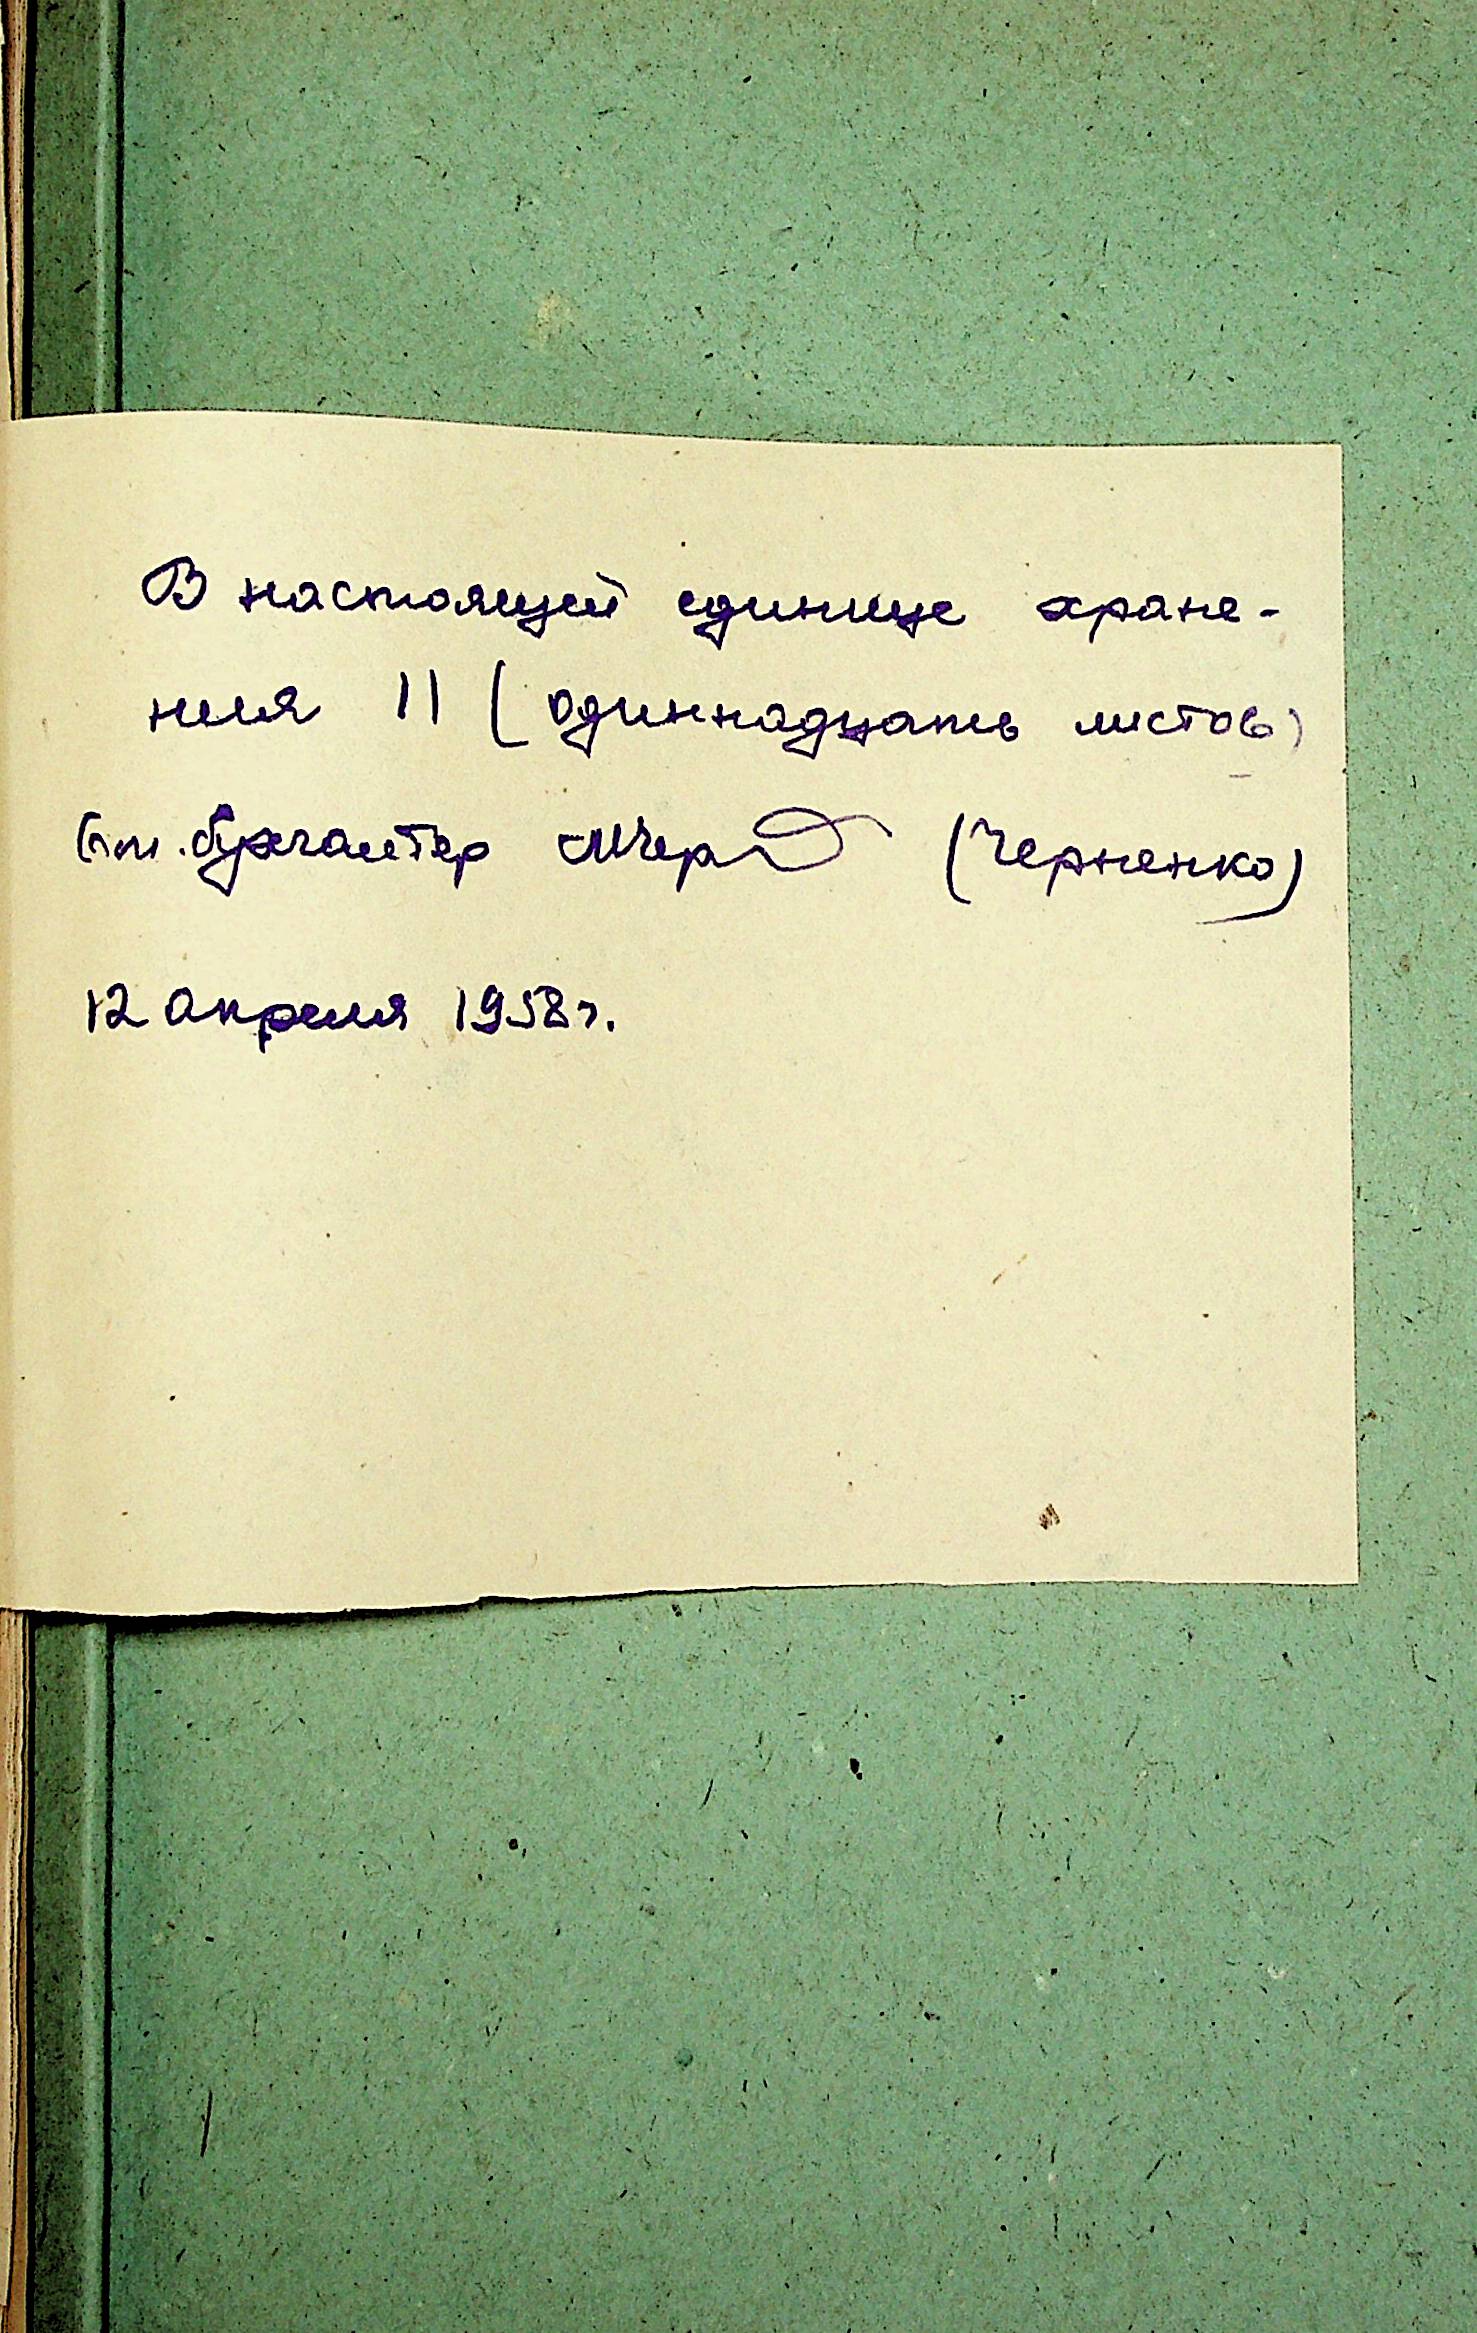 В настоящей единице хране-
ния 11 (одиннадцать листов)
Ст. бухгалтер (Черненко)
12 апреля 1958 г.